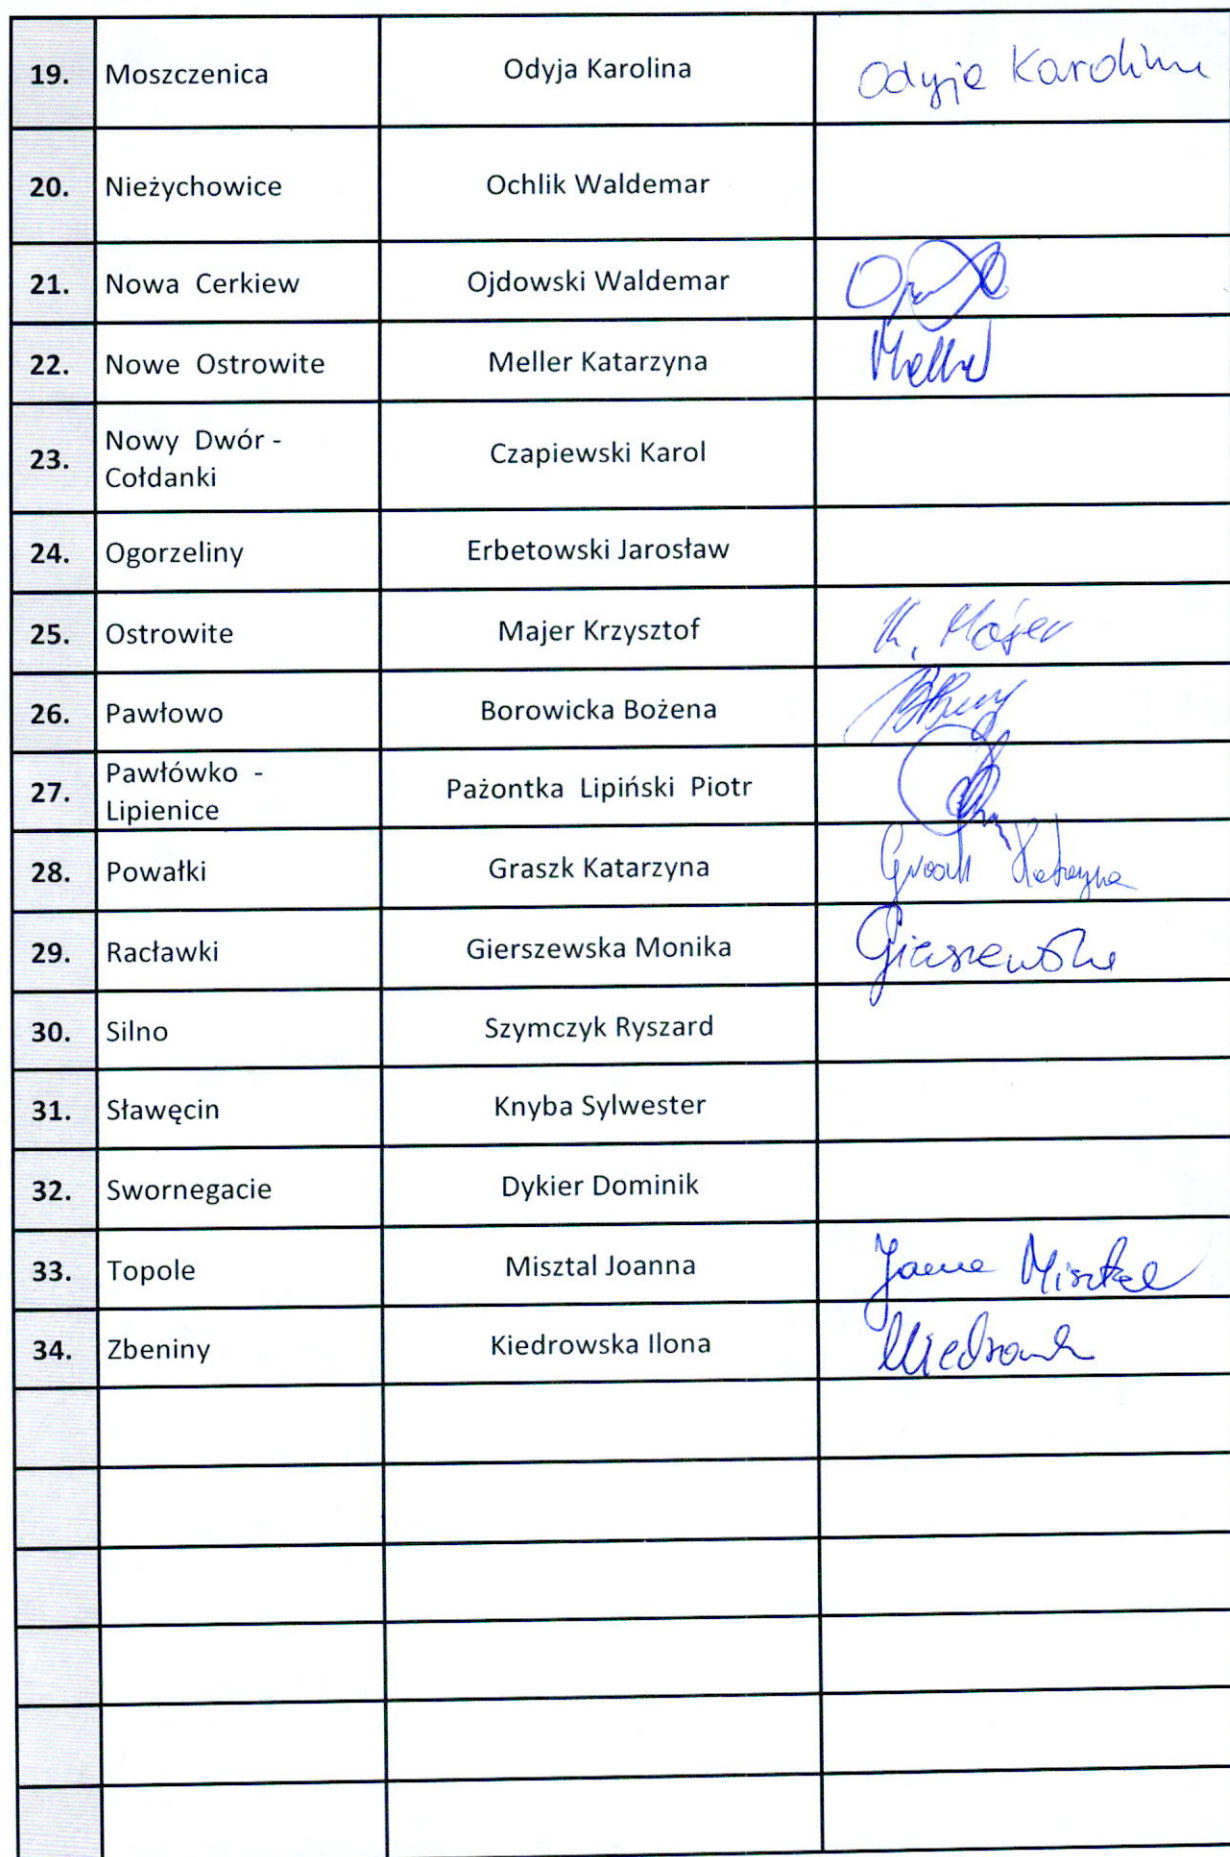 19. Moszczenica Odyja Karolina Odyja Karolina
20. Nieżychowice Ochlik Waldemar
21. Nowa Cerkiew Ojdowski Waldemar
22. Nowe Ostrowite Meller Katarzyna Meller
23. Nowy Dwór -
Cołdanki Czapiewski Karol
24. Ogorzeliny Erbetowski Jarosław
25. Ostrowite Majer Krzysztof K. Majer
26. Pawłowo Borowicka Bożena
27. Pawłówko -
Lipienice Pażontka Lipiński Piotr
28. Powałki Graszk Katarzyna Graszk Katarzyna
29. Racławki Gierszewska Monika Gierszewska
30. Silno Szymczyk Ryszard
31. Sławęcin Knyba Sylwester
32. Swornegacie Dykier Dominik
33. Topole Misztal Joanna Joanna Misztal
34. Zbeniny Kiedrowska Ilona